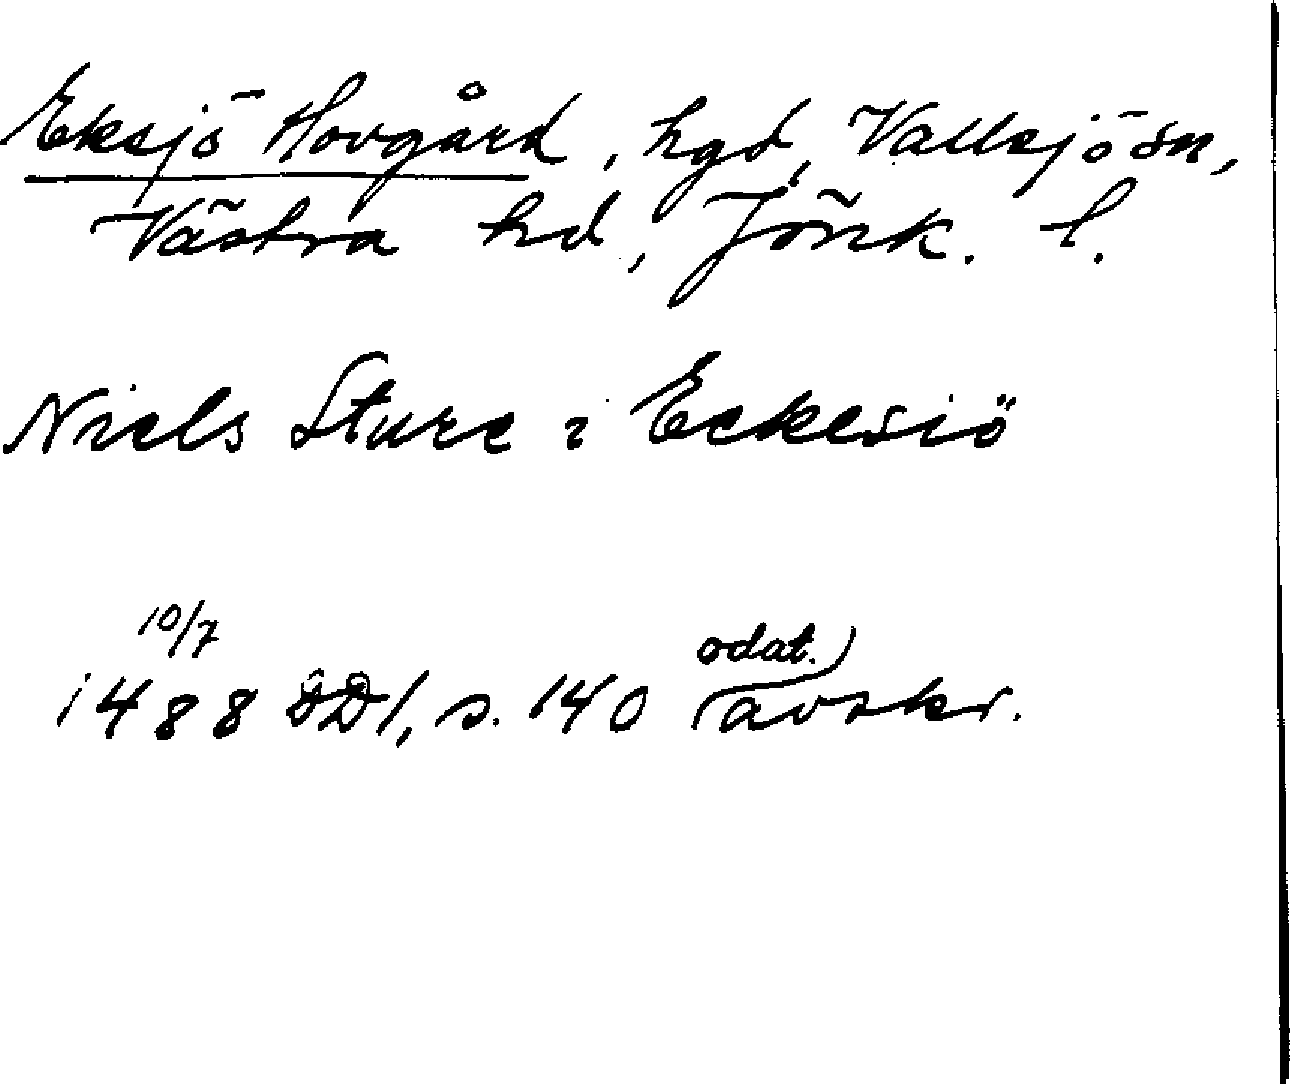 Eksjö Hovgård, hgd, Vallsjö sn,
Västra hd, Jönk. l.
Niels Sture i Eckesiö
10/7
1488 DD1, s. 140 (odat. avskr.